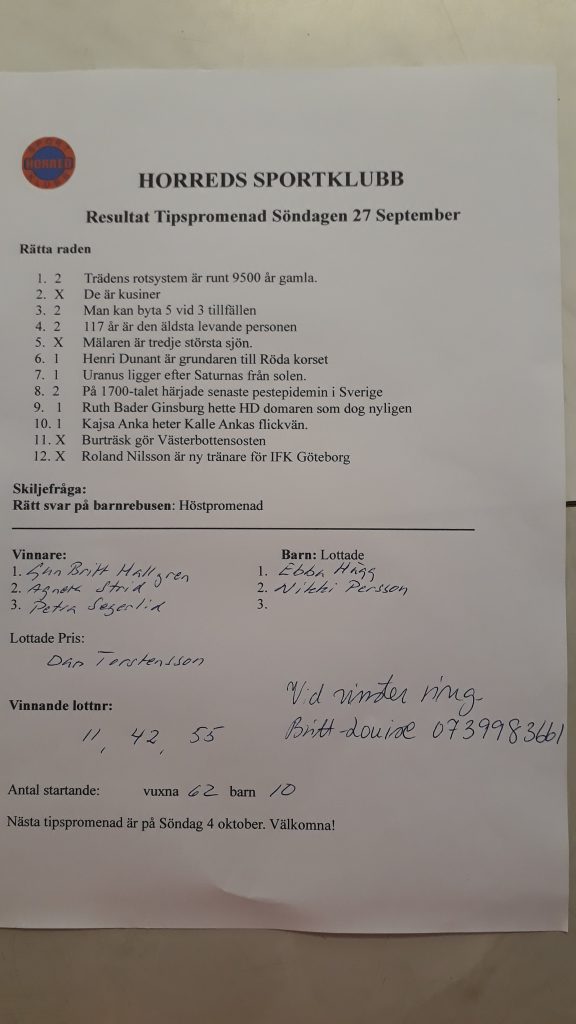 SPORT
HORRED
KLUBB
HORREDS SPORTKLUBB
Resultat Tipspromenad Söndagen 27 September
Rätta raden
1. 2 Trädens rotsystem är runt 9500 år gamla.
2. X De är kusiner
3. 2 Man kan byta 5 vid 3 tillfällen
4. 2 117 år är den äldsta levande personen
5. X Mälaren är tredje största sjön.
6. 1 Henri Dunant är grundaren till Röda korset
7. 1 Uranus ligger efter Saturnas från solen.
8. 2 På 1700-talet härjade senaste pestepidemin i Sverige
9. 1 Ruth Bader Ginsburg hette HD domaren som dog nyligen
10. 1 Kajsa Anka heter Kalle Ankas flickvän.
11. X Burträsk gör Västerbottensosten
12. X Roland Nilsson är ny tränare för IFK Göteborg
Skiljefråga:
Rätt svar på barnrebusen: Höstpromenad
Vinnare: Barn: Lottade
1. Gun Britt Hallgren 1. Ebba Hägg
2. Agneta Strid 2. Nikki Persson
3. Petra Segerlid 3.
Lottade Pris:
Dan Torstensson
Vid vinster ring
Vinnande lottnr:
11, 42, 55 Britt-Louise 0739983661
Antal startande: vuxna 62 barn 10
Nästa tipspromenad är på Söndag 4 oktober. Välkomna!